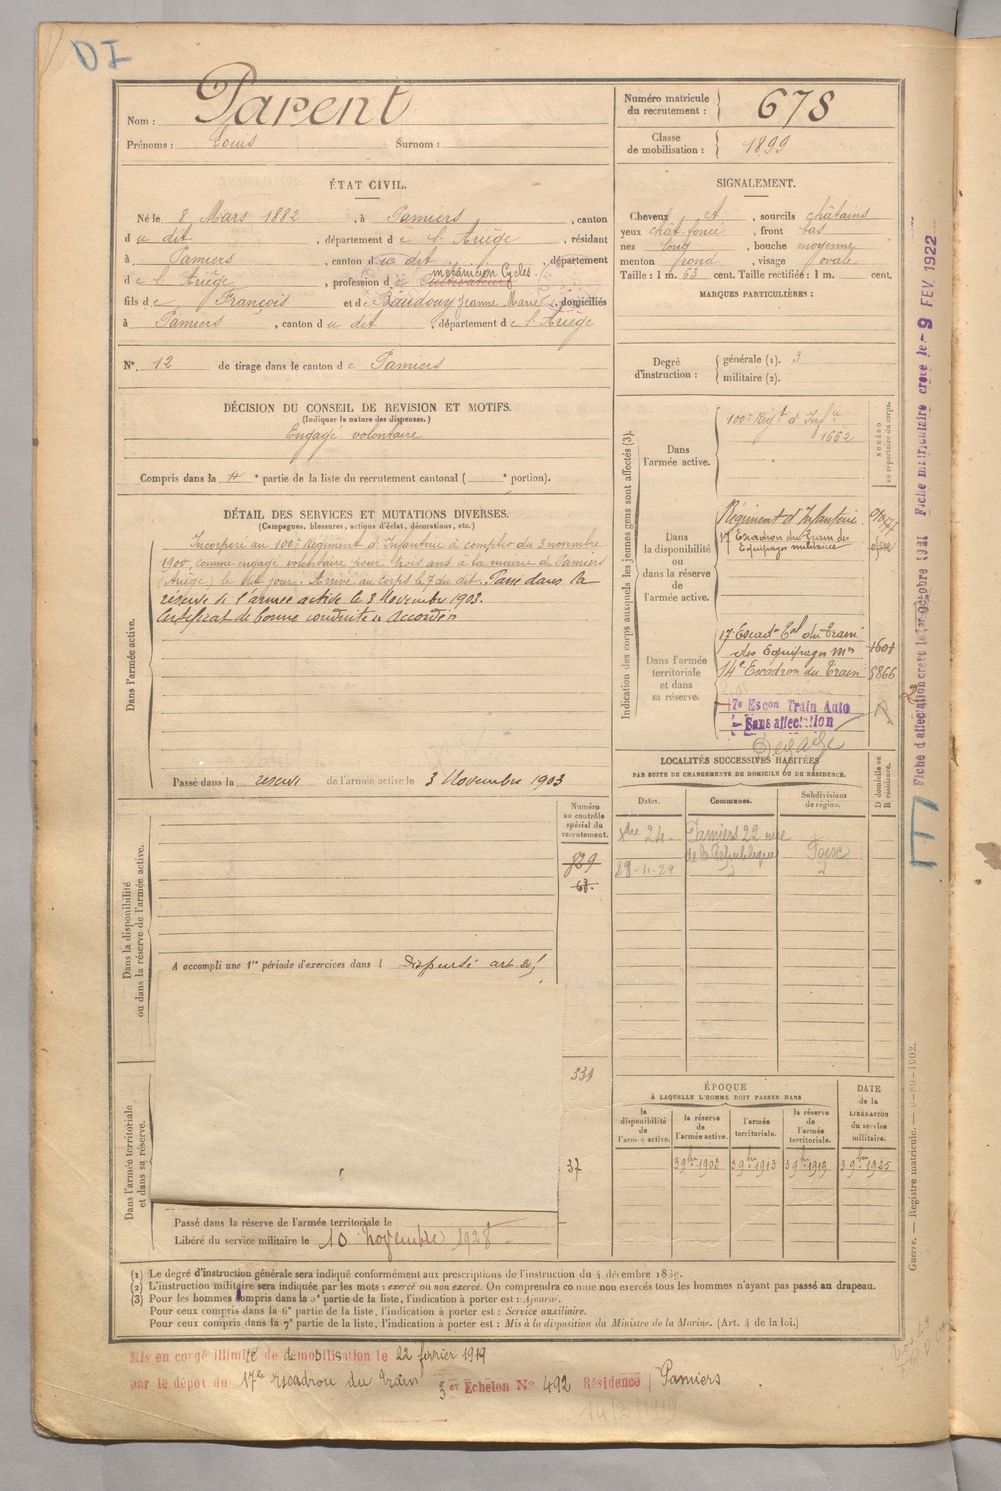 DI
Nom : Parent
Prénoms : Louis Surnom :
Numéro matricule
du recrutement : 678
Classe
de mobilisation : 1899
ÉTAT CIVIL.
Né le 8 Mars 1882 , à Pamiers , canton
du dit , département de l'Ariège , résidant
à Pamiers , canton du dit , département
de l'Ariège , profession de Cultivateur mécanicien Cycles.
fils de François et de Baudouy Jeanne Marie domiciliés
à Pamiers , canton du dit , département de l'Ariège
N°. 12 de tirage dans le canton de Pamiers
SIGNALEMENT.
Cheveux et , sourcils châtains
yeux chat. foncé , front bas
nez long , bouche moyenne
menton rond , visage ovale
Taille : 1 m. 63 cent. Taille rectifiée : 1 m. cent.
MARQUES PARTICULIÈRES :
Degré
d'instruction :
générale (1). 3
militaire (2).
DÉCISION DU CONSEIL DE REVISION ET MOTIFS.
(Indiquer la nature des dispenses.)
Engagé volontaire
Compris dans la 4e partie de la liste du recrutement cantonal ( e portion).
DÉTAIL DES SERVICES ET MUTATIONS DIVERSES.
(Campagnes, blessures, actions d'éclat, décorations, etc.)
Dans l'armée active.
Incorporé au 100e Régiment d'Infanterie à compter du 3 novembre
1900, comme engagé volontaire pour trois ans à la mairie de Pamiers
(Ariège) le dit jour. Arrivé au corps le 7 du dit. Passé dans la
réserve de l'armée active le 3 Novembre 1903.
Certificat de bonne conduite "accordé"
Passé dans la réserve de l'armée active le 3 Novembre 1903
Indication des corps auxquels les jeunes gens sont affectés (3).
NUMÉRO
au répertoire du corps.
Dans
l'armée active.
100e Régt d'Infie
1662
Dans
la disponibilité
ou
dans la réserve
de
l'armée active.
Régiment d'Infanterie
17e Escadron du Train des
Equipages militaires
Dans l'armée
territoriale
et dans
sa réserve.
17e Escadn Tal du Train
des Equipages Mres 1601
14e Escadron du Train 5866
17e Escon Train Auto
Sans affectation
Fiche d'affectation créée le 1er Octobre 1921 Fiche matriculaire créée le - 9 FEV 1922
LOCALITÉS SUCCESSIVES HABITÉES
PAR SUITE DE CHANGEMENTS DE DOMICILE OU DE RÉSIDENCE.
D domicile ou
R résidence.
Dates. Communes. Subdivisions
de région.
Xbre 24. Pamiers 22 rue
de la République Foix
28-11-29
Dans la disponibilité
ou dans la réserve de l'armée active.
Numéro
au contrôle
spécial du
recrutement.
829
63.
A accompli une 1re période d'exercices dans l Dispensé art. 20
331
37
Dans l'armée territoriale
et dans sa réserve.
Passé dans la réserve de l'armée territoriale le
Libéré du service militaire le 10 novembre 1928
ÉPOQUE
À LAQUELLE L'HOMME DOIT PASSER DANS
la
disponibilité
de
l'armée active.
la réserve
de
l'armée active.
l'armée
territoriale.
la réserve
de
l'armée
territoriale.
DATE
de la
LIBÉRATION
du service
militaire.
3 9bre 1903 3 9bre 1913 3 9bre 1919 3 9bre 1925
Guerre. — Registre matricule. — 9-89-1902.
(1) Le degré d'instruction générale sera indiqué conformément aux prescriptions de l'instruction du 4 décembre 1889.
(2) L'instruction militaire sera indiquée par les mots : exercé ou non exercé. On comprendra comme non exercés tous les hommes n'ayant pas passé au drapeau.
(3) Pour les hommes compris dans la 5e partie de la liste, l'indication à porter est : Ajourné.
Pour ceux compris dans la 6e partie de la liste, l'indication à porter est : Service auxiliaire.
Pour ceux compris dans la 7e partie de la liste, l'indication à porter est : Mis à la disposition du Ministre de la Marine. (Art. 4 de la loi.)
Mis en congé illimité de démobilisation le 22 février 1919
par le dépôt du 17e escadron du Train 3er Echelon N° 492 Résidence Pamiers